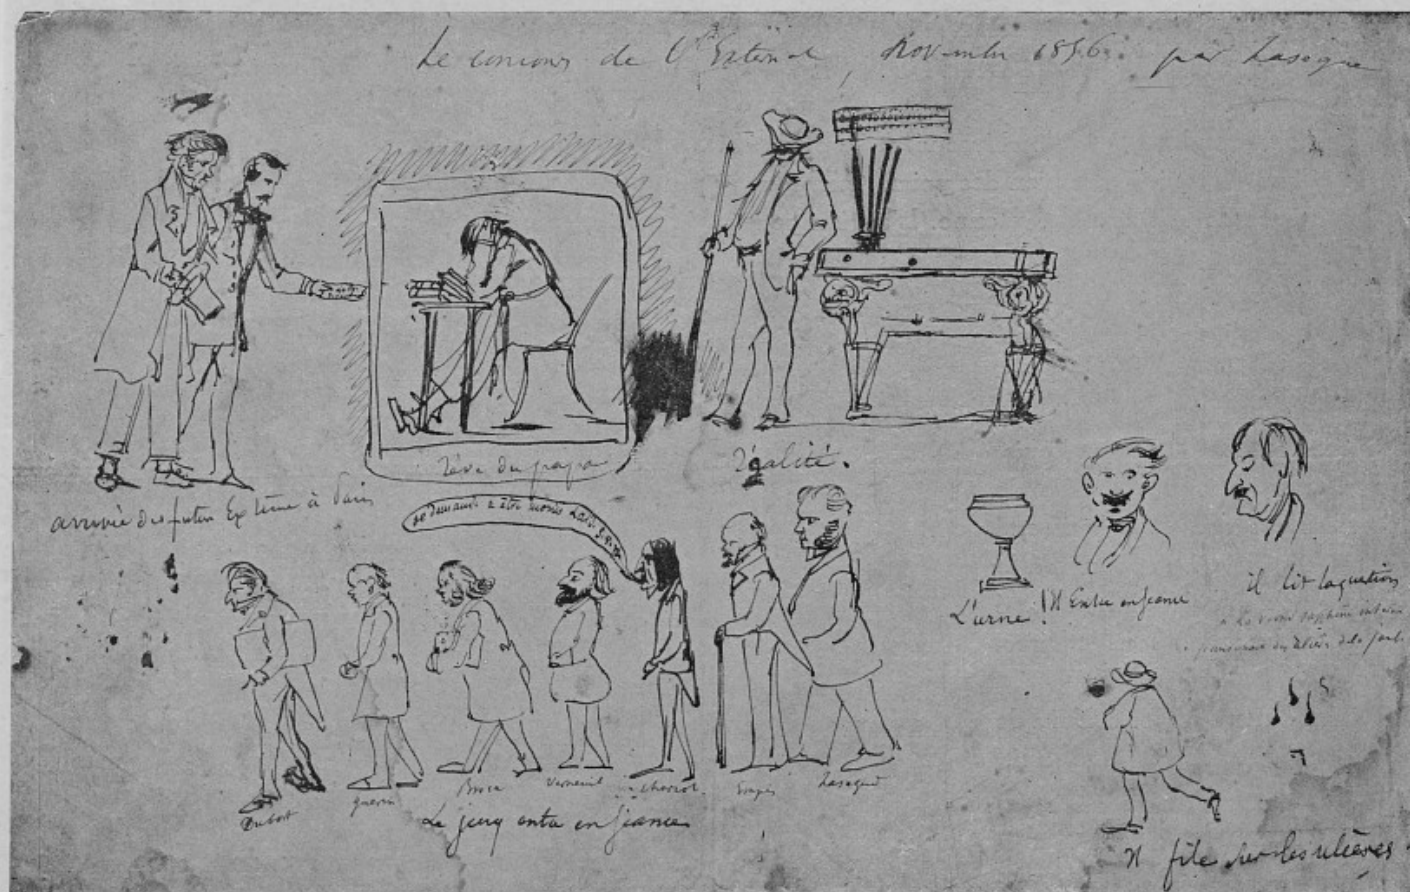 Le concours de l'Externat, Novembre 1856. par Lasegue
arrivée du futur Externe à Paris
Rêve du papa
Réalité.
demande à être moins
L'urne!
Il Entre en séance
il lit la question
Dubost
Guerin
Broca
Verneuil
Charcot
Empis
Lasegue
Le jury entre en séance
Il file sur les ulcères